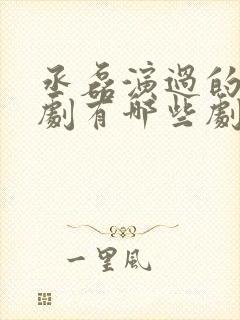 丞磊演過的
劇有哪些劇
一里風